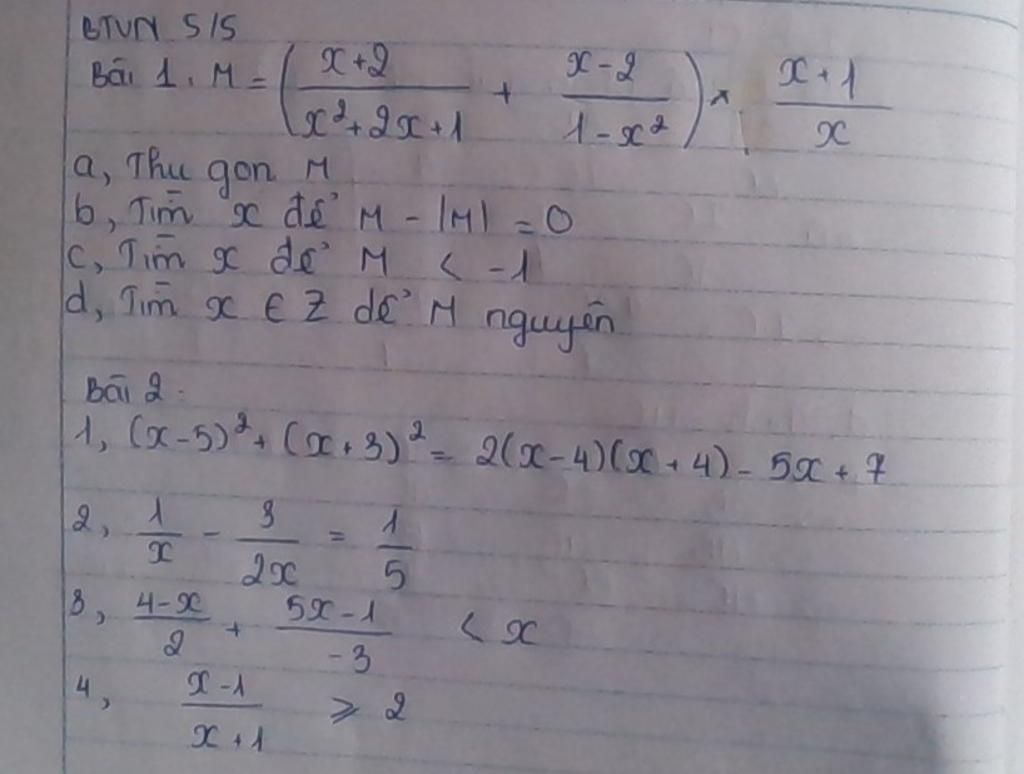 BTVN 5/5
Bài 1. M = ( x+2 / x²+2x+1 + x-2 / 1-x² ) × x+1 / x
a, Thu gọn M
b, Tìm x để M - |M| = 0
c, Tìm x để M < -1
d, Tìm x ∈ Z để M nguyên
Bài 2:
1, (x-5)² + (x+3)² = 2(x-4)(x+4) - 5x + 7
2, 1/x - 3/2x = 1/5
3, 4-x / 2 + 5x-1 / -3 < x
4, x-1 / x+1 ⩾ 2